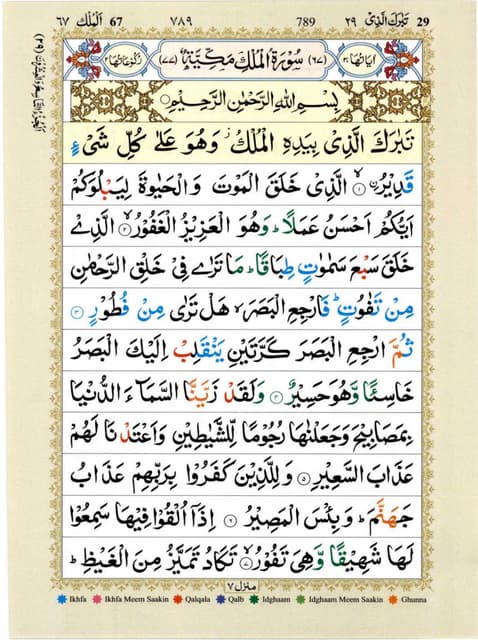 29 تَبٰرَكَ الَّذِىْ ٢٩
789
٧٨٩
67 اَلْمُلْك ٦٧
اٰيَاتُهَا ٣٠
(٦٧) سُوْرَةُ الْمُلْكِ مَكِّيَّةٌ (٧٧)
رُكُوْعَاتُهَا ٢
بِسْمِ اللهِ الرَّحْمٰنِ الرَّحِيْمِ
تَبٰرَكَ الَّذِىْ بِيَدِهِ الْمُلْكُ ز وَهُوَ عَلٰى كُلِّ شَىْءٍ
قَدِيْرُ ۙ ۝١ الَّذِىْ خَلَقَ الْمَوْتَ وَالْحَيٰوةَ لِيَبْلُوَكُمْ
اَيُّكُمْ اَحْسَنُ عَمَلًا ؕ وَهُوَ الْعَزِيْزُ الْغَفُوْرُ ۙ ۝٢ الَّذِىْ
خَلَقَ سَبْعَ سَمٰوٰتٍ طِبَاقًا ؕ مَا تَرٰى فِىْ خَلْقِ الرَّحْمٰنِ
مِنْ تَفٰوُتٍ ؕ فَارْجِعِ الْبَصَرَ ۙ هَلْ تَرٰى مِنْ فُطُوْرٍ ۝٣
ثُمَّ ارْجِعِ الْبَصَرَ كَرَّتَيْنِ يَنْقَلِبْ اِلَيْكَ الْبَصَرُ
خَاسِئًا وَّهُوَ حَسِيْرٌ ۝٤ وَلَقَدْ زَيَّنَّا السَّمَآءَ الدُّنْيَا
بِمَصَابِيْحَ وَجَعَلْنٰهَا رُجُوْمًا لِّلشَّيٰطِيْنِ وَاَعْتَدْنَا لَهُمْ
عَذَابَ السَّعِيْرِ ۝٥ وَلِلَّذِيْنَ كَفَرُوْا بِرَبِّهِمْ عَذَابُ
جَهَنَّمَ ؕ وَبِئْسَ الْمَصِيْرُ ۝٦ اِذَآ اُلْقُوْا فِيْهَا سَمِعُوْا
لَهَا شَهِيْقًا وَّهِىَ تَفُوْرُ ۙ ۝٧ تَكَادُ تَمَيَّزُ مِنَ الْغَيْظِ ؕ
منزل ٧
Ikhfa Ikhfa Meem Saakin Qalqala Qalb Idghaam Idghaam Meem Saakin Ghunna